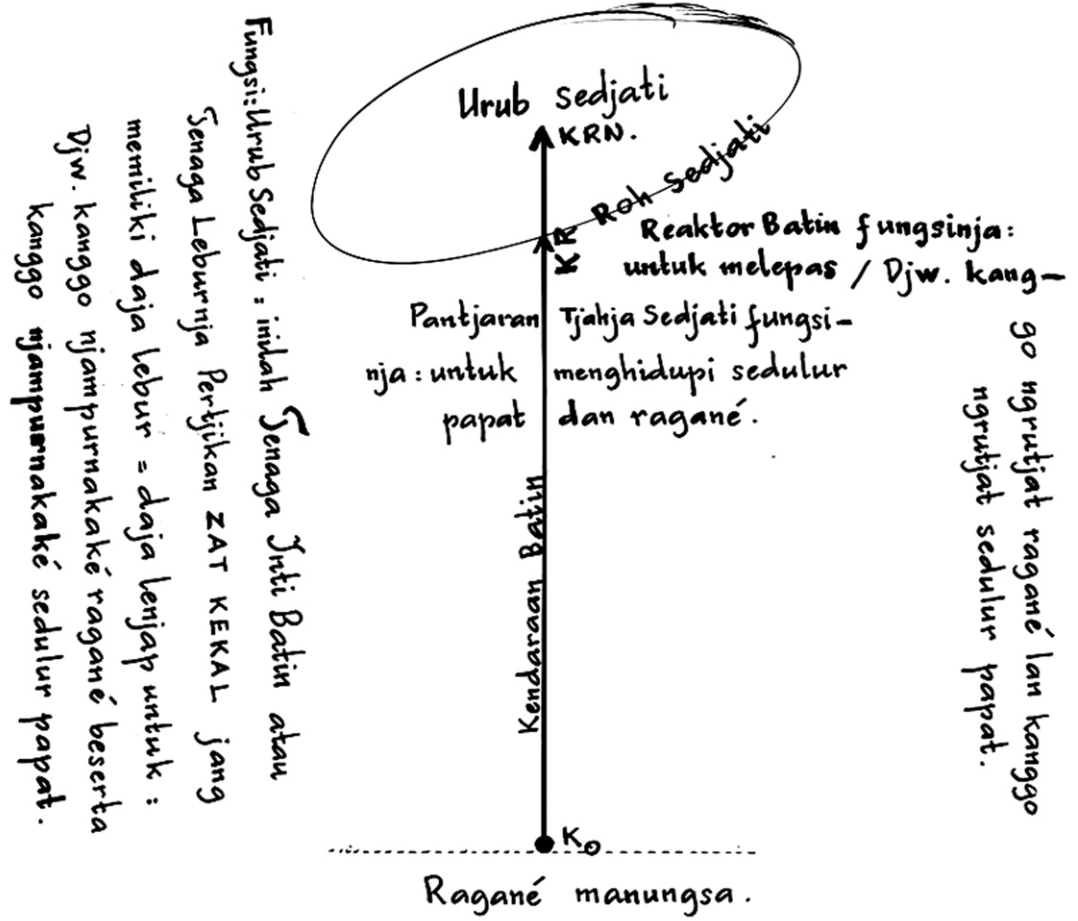 Urub Sedjati
KRN.
Roh Sedjati
KR
Reaktor Batin fungsinja:
untuk melepas / Djw. kang-
go ngrutjat ragané lan kanggo
ngrutjat sedulur papat.
Pantjaran Tjahja Sedjati fungsi-
nja: untuk menghidupi sedulur
papat dan ragané.
Kendaraan Batin
Ko
Ragané manungsa.
Fungsi: Urub Sedjati: inilah Tenaga Inti Batin atau
Tenaga Leburnja Pertjikan ZAT KEKAL jang
memiliki daja lebur = daja lenjap untuk:
Djw. kanggo njampurnakaké ragané beserta
kanggo njampurnakaké sedulur papat.